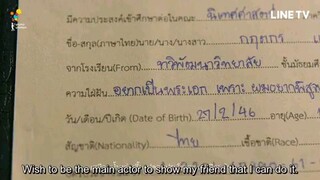 LINE TV
มีความประสงค์เข้าศึกษาต่อในคณะ นิเทศศาสตร์
ชื่อ-สกุล(ภาษาไทย)นาย/นาง/นางสาว กฤตกร
จากโรงเรียน(From) วิทยาลัย ชั้นมัธยม
ความใฝ่ฝัน อยากเป็นพระเอก เพราะ ผมอยากพิสูจ
วัน/เดือน/ปีเกิด (Date of Birth) 27/2/46 อายุ(Age)
สัญชาติ(Nationality) ไทย เชื้อชาติ(Race)
Wish to be the main actor to show my friend that I can do it.